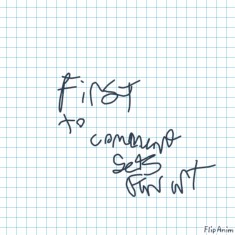 First
to
comment
Gets
FlipAnim